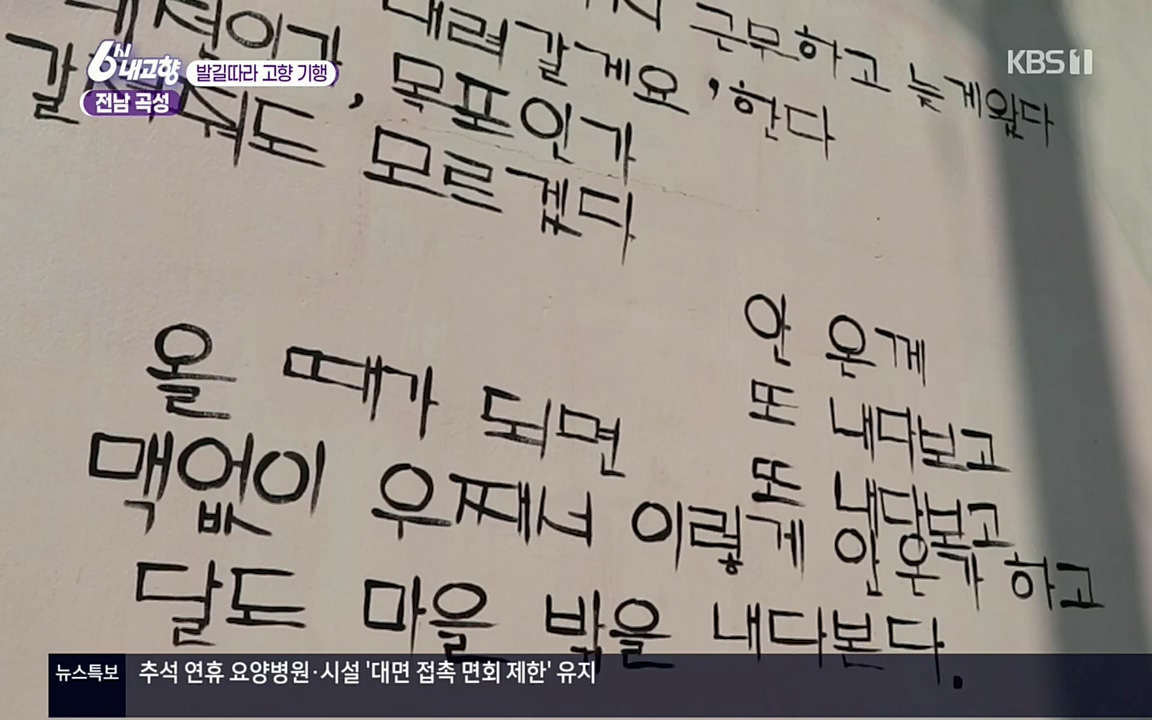 6시 내고향
발길따라 고향 기행
전남 곡성
KBS1
근무하고 늦게왔다
내려갈게요, 헌다
, 목포인가
모르겄다
안 온게
또 내다보고
또 내다보고
올 때가 되면
맥없이 우째서 이렇게 안온가 하고
달도 마을 밖을 내다본다.
뉴스특보 추석 연휴 요양병원·시설 '대면 접촉 면회 제한' 유지